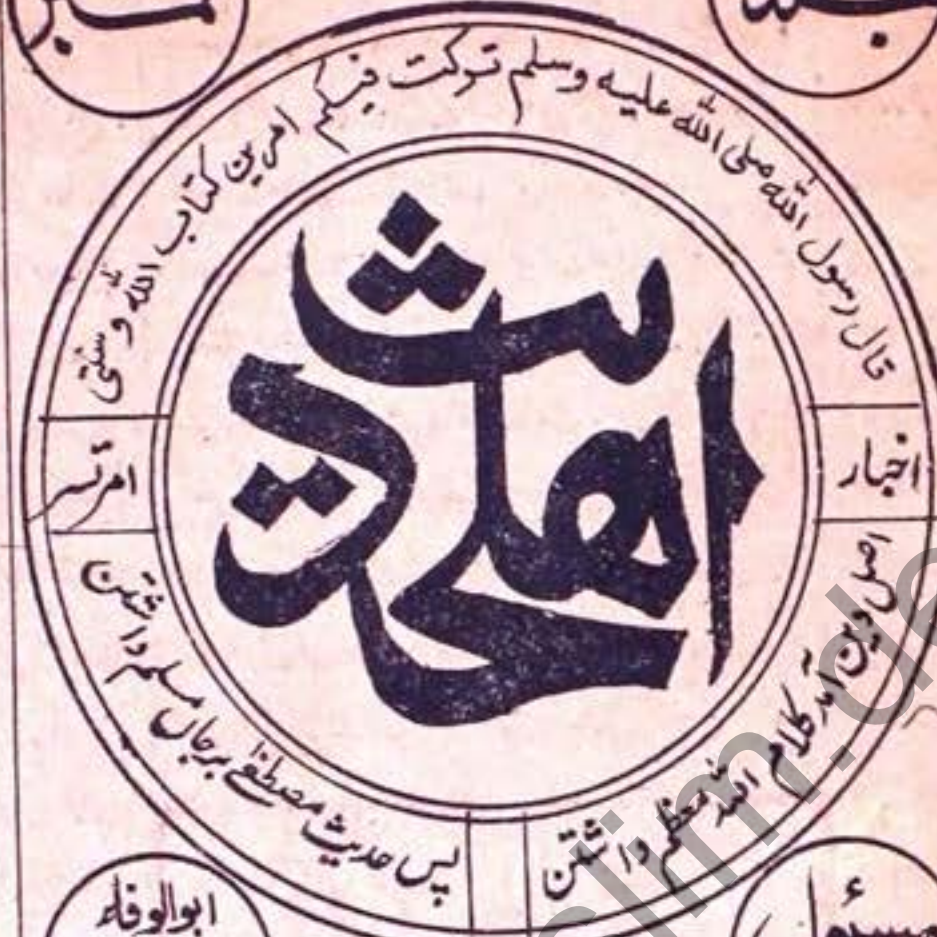 جلد
نمبر
قال رسول الله صلى الله عليه وسلم تركت فيكم امرين كتاب الله وسنتى
اهلحدیث
اخبار
امرتسر
اصل دین آمد کلام اللہ معظم داشتن
پس حدیث مصطفےٰ برجاں مسلم داشتن
ابوالوفاء